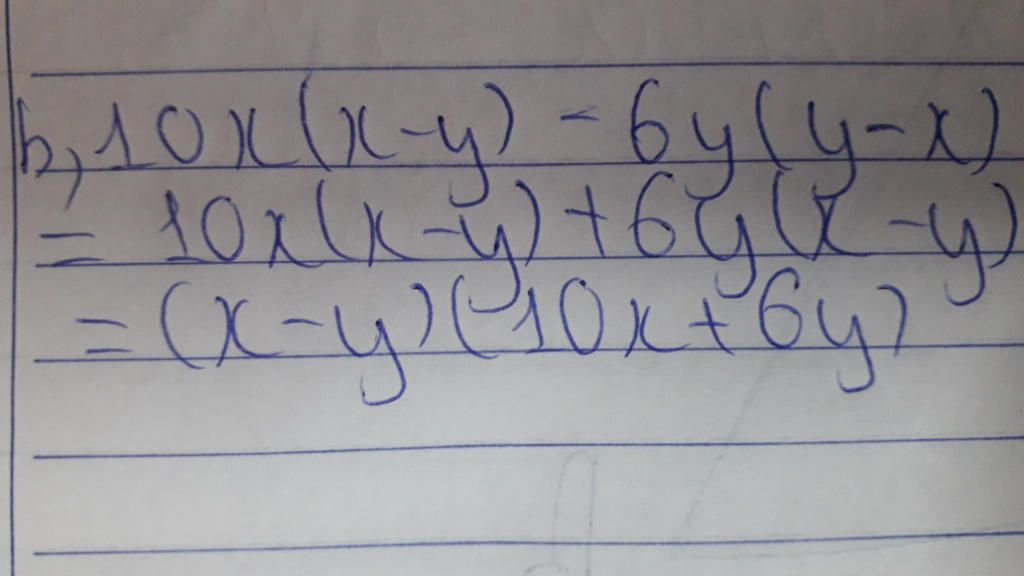 b, 10x(x-y) - 6y(y-x)
= 10x(x-y)+6y(x-y)
= (x-y)(10x+6y)